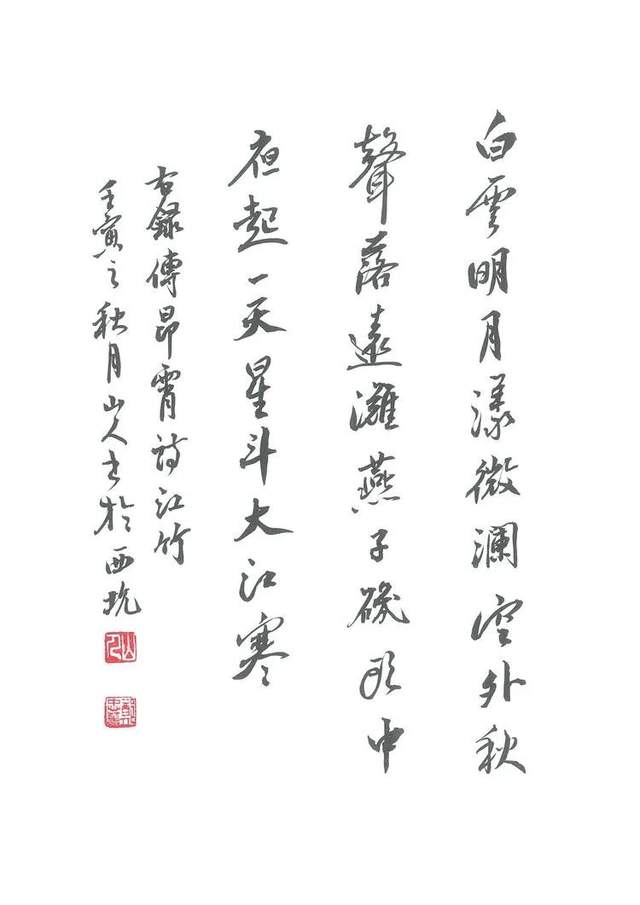 白雲明月漾微澜空外秋
聲落遠灘燕子磯頭中
夜起一天星斗大江寒
右録傅昂霄詩江竹
壬寅之秋月山人書於西坑
山人